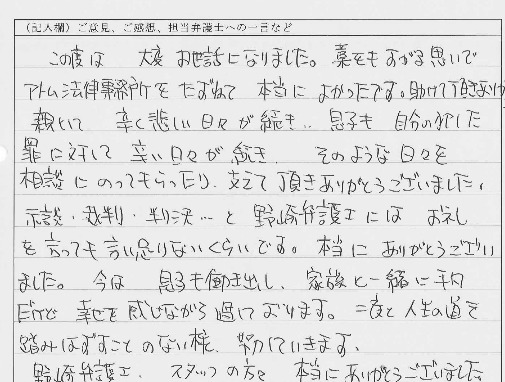 (記入欄)ご意見、ご感想、担当弁護士への一言など
この度は 大変 お世話になりました。藁をもすがる思いで
アトム法律事務所を たずねて 本当に よかったです。助けて頂きありが
親として 辛く悲しい日々が続き、、息子も 自分の犯した
罪に対して 辛い日々が 続き、 そのような 日々を
相談に のってもらったり、支えて頂きありがとうございました。
示談・裁判・判決…と 野崎弁護士には お礼
を言っても言い足りないくらいです。本当に ありがとうござい
ました。 今は 息子も働き出し、 家族と一緒に平凡
だけど 幸せを感じながら 過しております。 二度と人生の道を
踏みはずすことのない様、努力していきます。
野崎弁護士、 スタッフの方々 本当にありがとうございました